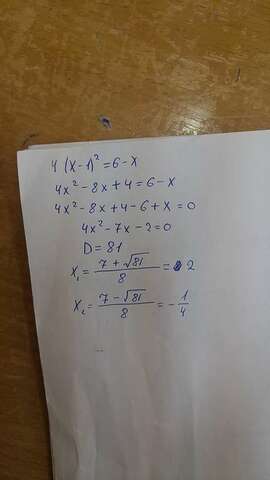 4 (x-1)² = 6-x
4x² - 8x + 4 = 6 - x
4x² - 8x + 4 - 6 + x = 0
4x² - 7x - 2 = 0
D = 81
x₁ = (7 + √81)/8 = 2
x₂ = (7 - √81)/8 = - 1/4